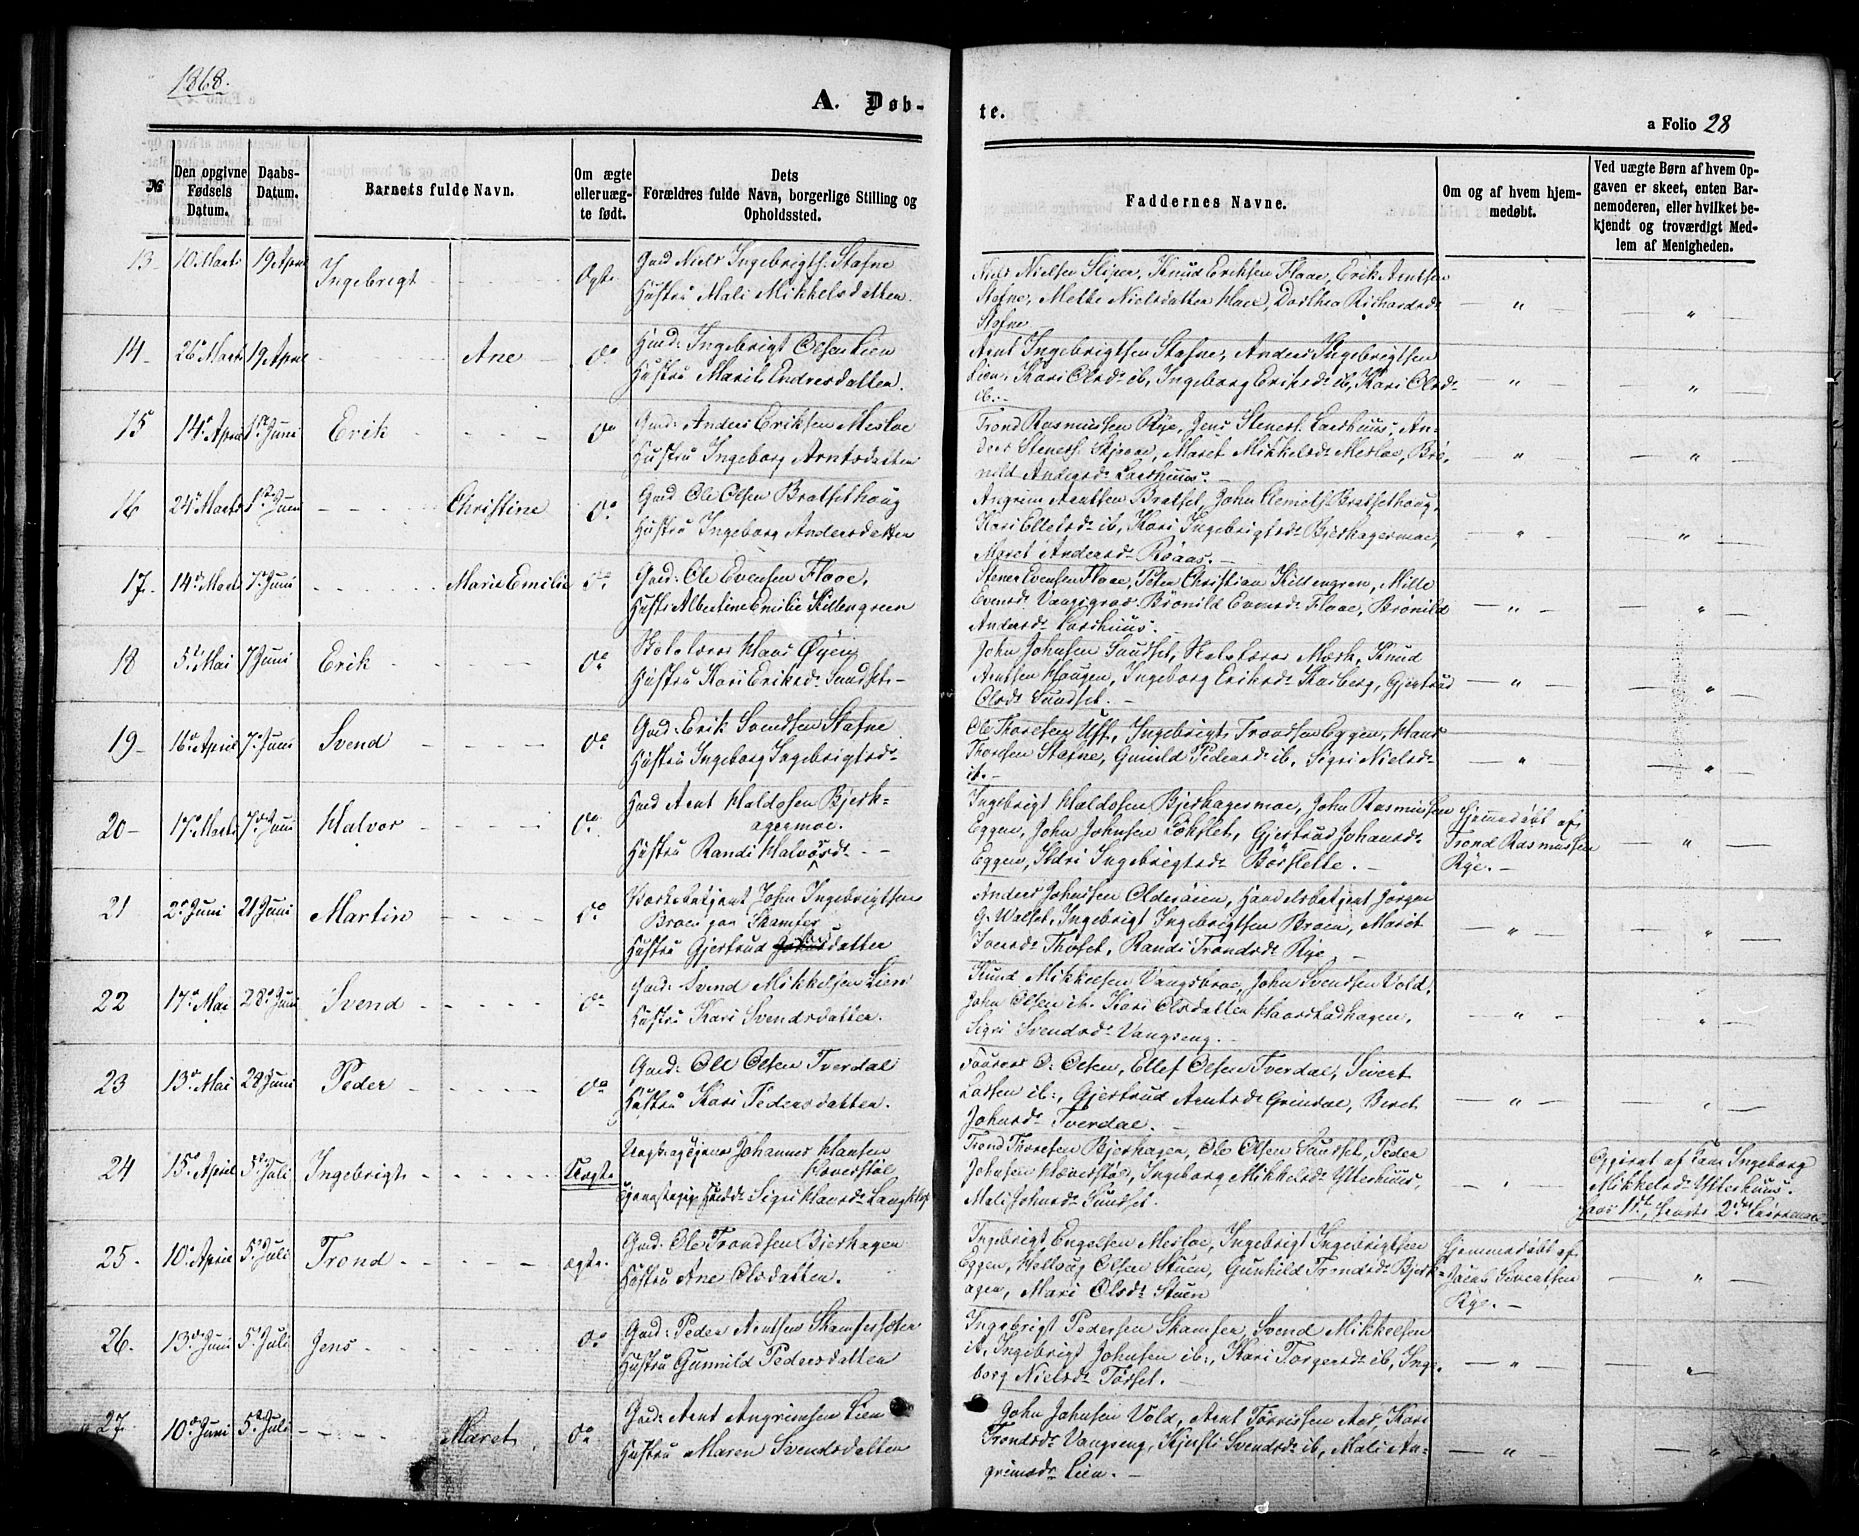 1868.
A. Døb-
te.
a Folio 28
№
Den opgivne Fødsels Datum.
Daabs-Datum.
Barnets fulde Navn.
Om ægte eller uæg-te født.
Dets Forældres fulde Navn, borgerlige Stilling og Opholdssted.
Faddernes Navne.
Om og af hvem hjem-medøbt.
Ved uægte Børn af hvem Op-gaven er skeet, enten Bar-nemoderen, eller hvilket be-kjendt og troværdigt Med-lem af Menigheden.
13 10 Marts 19 April Ingebrigt Ægte
Gmd Niels Ingebrigts. Stafne
Hustru Mali Mikkelsdatter.
Niels Nielsen Sliper, Knud Eriksen Floae, Erik Arntsen
Stafne, Nielsdatter Dorthea Richardsd:
Stafne
14 26 Marts 19 April Ane do
Gmd: Ingebrigt Olsen Lien
Hustru Marit Endresdatter.
Arnt Ingebrigtsen Stafne, Anders Ingebrigtsen
Lien, Kari Olsd: ib, Ingeborg Eriksd: ib, Kari Olsd:
ib.-
15 14 April 1 Juni Erik do
Gmd: Anders Eriksen Mesloe
Hustru Ingeborg Arntsdatter
Trond Rasmussen Rye, Jens Steners. Laashuus, An-
ders Steners. Maret Mikkelsd: Mesloe, Brø-
nild Andersd: Laashuus.
16 24 Marts 1 Juni Christine do
Gmd Ole Olsen Bratsethoug
Hustru Ingeborg Andersdatter
Angrim Arntsen Bratset, John Bratsethoug,
Kari Ellefsd: ib, Kari Ingebrigtsd: Bjerkagermoe,
Maret Andersd: Røaas.
17. 14 Marts 7 Juni Marie Emilie do
Gmd: Ole Evensen Floae,
Hustr Albertine Emilie Kittengreen
Stener Evensen Floae, Peter Christian Kittengren, Mille
Evensd: Brønild Evensd: Floae, Brønild
Andersd: Laashuus.
18 5 Mai 7 Juni Erik do
Skolelærer Hans Øyen
Hustru Kari Eriksd: Sundset
John Johnsen Sundset, Skolelærer Mærk, Knud
Arntsen Hougen, Ingeborg Eriksd: Karberg, Gjertrud
Olsd: Sundset.
19 16 April 7 Juni Svend do
Gmd: Erik Svendsen Stafne
Hustru Ingeborg Ingebrigtsd:
Ole Thoresen Uff, Ingebrigt Trondsen Eggen, Hans
Thoresen Stafne, Gunild Pedersd: ib, Sigri Nielsd:
ib.
20 17 Marts 7 Juni Halvor do
Gmd Arnt Haldosen Bjerk-
agermoe.
Hustru Randi Halvorsd:
Ingebrigt Haldosen Bjerkagermoe, John Rasmussen
Eggen, John Johnsen Gjertrud Johansd:
Eggen, Ildri Ingebrigtsd: Børslette.
Hjemmedøbt af
Trond Rasmussen
Rye.
21 2 Juni 21 Juni Martin do
John Ingebrigtsen
Broen paa Skamfer
Hustru Gjertrud datter
Anders Johnsen Olderøien, Handelsbetjent Jørgen
G. Walset, Ingebrigt Ingebrigtsen Broen, Marit
Iversd: Thøset, Randi Trondsd: Rye.
22 17 Mai 28 Juni Svend do
Gmd: Svend Mikkelsen Lien
Hustru Kari Svendsdatter.
Knud Mikkelsen Vangsbroe, John Svendsen Vold,
John Olsen ib. Kari Olsdatter Haarstadhagen,
Sigri Svendsd: Vangseng.
23 13 Mai 28 Juni Peder do
Gmd: Ole Olsen Tverdal
Hustru Kari Pedersdatter.
O. Olsen, Ellef Olsen Tverdal, Sivert
Larsen ib:, Gjertrud Arntsd: Grindal, Beret
Johnsd: Tverdal.
24 15 April 5 Juli Ingebrigt Uægte
Johannes Hansen
Hæverstøl
Sigri Havrsd: Langklep
Trond Thoresen Bjerkagen, Ole Olsen Sundset, Peder
Johnsen Hæverstøl, Ingeborg Mikkelsd: Ytterhuus,
Mali Johnsd: Sundset.
Opgivet af Ingeborg
Mikkelsd: Ytterhuus.
25. 10 April 5 Juli Trond ægte.
Gmd: Ole Trondsen Bjerkagen
Hustru Ane Olsdatter.
Ingebrigt Engelsen Mesloe, Ingebrigt Ingebrigtsen
Eggen, Hellvig Olsen Stuen, Gunhild Trondsd: Bjerk-
agen, Mari Olsd: Stuen
Hjemmedøbt af
Jacob Sivertsen
Rye.
26. 13 Juni 5 Juli Jens do
Gmd: Peder Arntsen Skamfersæter
Hustru Gunnild Pedersdatter
Ingebrigt Pedersen Skamfer, Svend Mikkelsen
ib, Ingebrigt Johnsen ib:, Kari Torgersd: ib, Inge-
borg Nielsd: Tørset.
27. 10 Juni 5 Juli Maret do
Gmd: Arnt Angrimsen Lien
Hustru Maren Svendsdatter
John Johnsen Vold, Arnt Tørrissen Aas, Kari
Trondsd: Vangseng, Kjersti Svendsd: ib, Mali An-
grimsd: Lien.